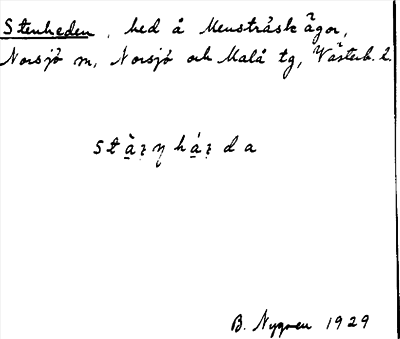 Stenheden, hed å Mensträsk ägor,
Norsjö sn, Norsjö och Malå tg, Västerb. l.
B. Nygren 1929